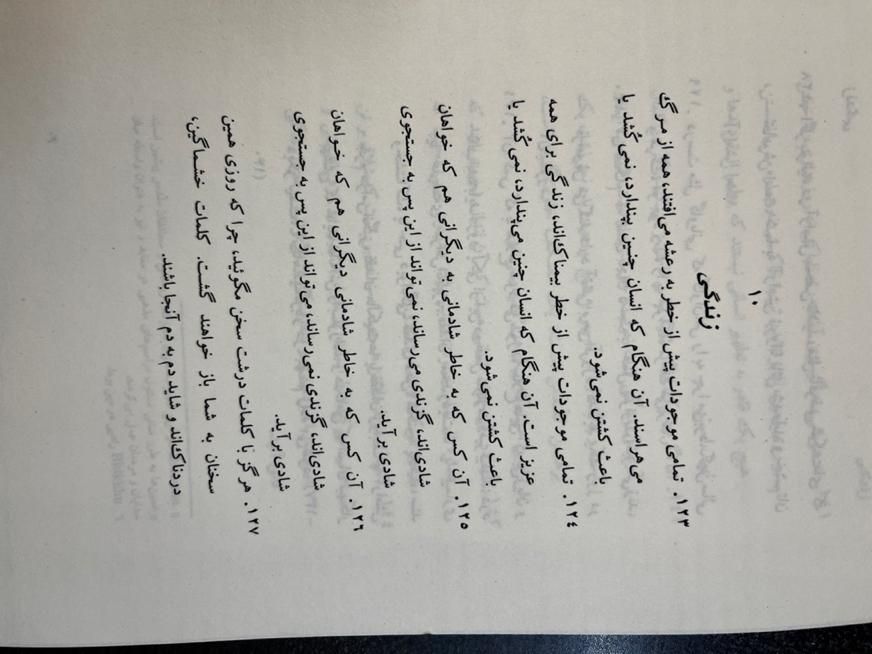 ۱۰
زندگی
۱۲۳. تمامی موجودات پیش از خطر به رعشه می‌افتند، همه از مرگ
می‌هراسند. آن هنگام که انسان چنین پندارد، نمی‌کُشد یا
باعث کشتن نمی‌شود.
۱۲٤. تمامی موجودات پیش از خطر بیمناک‌اند، زندگی برای همه
عزیز است. آن هنگام که انسان چنین می‌پندارد، نمی‌کُشد یا
باعث کشتن نمی‌شود.
۱۲۵. آن کس که به خاطر شادمانی به دیگرانی هم که خواهان
شادی‌اند، گزندی می‌رساند، نمی‌تواند از این پس به جستجوی
شادی برآید.
۱۲٦. آن کس که به خاطر شادمانی دیگرانی هم که خواهان
شادی‌اند، گزندی نمی‌رساند، می‌تواند از این پس به جستجوی
شادی برآید.
۱۲۷. هرگز با کلمات درشت سخن مگوئید، چرا که روزی همین
سخنان به شما باز خواهند گشت. کلمات خشماگین،
دردناک‌اند و شاید دم به دم آنجا باشند.